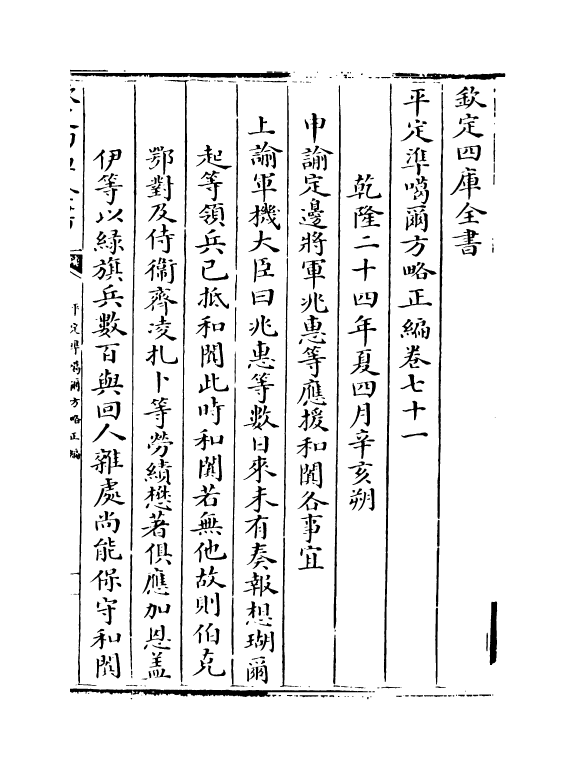 欽定四庫全書
平定準噶爾方略正編卷七十一
乾隆二十四年夏四月辛亥朔
申諭定邊將軍兆惠等應援和闐各事宜
上諭軍機大臣曰兆惠等數日來未有奏報想瑚爾
起等領兵已抵和闐此時和闐若無他故則伯克
鄂對及侍衛齊凌扎卜等勞績懋著俱應加恩盖
伊等以綠旗兵數百與回人雜處尚能保守和闐
平定準噶爾方略正編